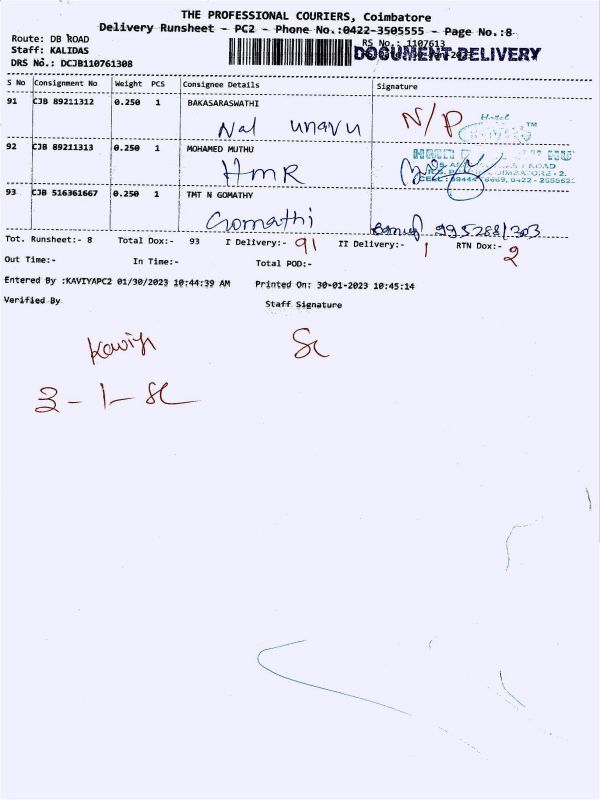 THE PROFESSIONAL COURIERS, Coimbatore
Delivery Runsheet - PC2 - Phone No.:0422-3505555 - Page No.:8
Route: DB ROAD
RS No.: 1107613
Staff: KALIDAS
DOCUMENT DELIVERY
DRS No.: DCJB110761308
S No Consignment No Weight PCS Consignee Details Signature
91 CJB 89211312 0.250 1 BAKASARASWATHI
Nal unavu N/P Hotel
TM
92 CJB 89211313 0.250 1 MOHAMED MUTHU
HMR
93 CJB 516361667 0.250 1 TMT N GOMATHY
Gomathi
Tot. Runsheet:- 8 Total Dox:- 93 I Delivery:- 91 II Delivery:- 1 RTN Dox:- 2
Out Time:- In Time:- Total POD:-
Entered By :KAVIYAPC2 01/30/2023 10:44:39 AM Printed On: 30-01-2023 10:45:14
Verified By Staff Signature
Kaviya